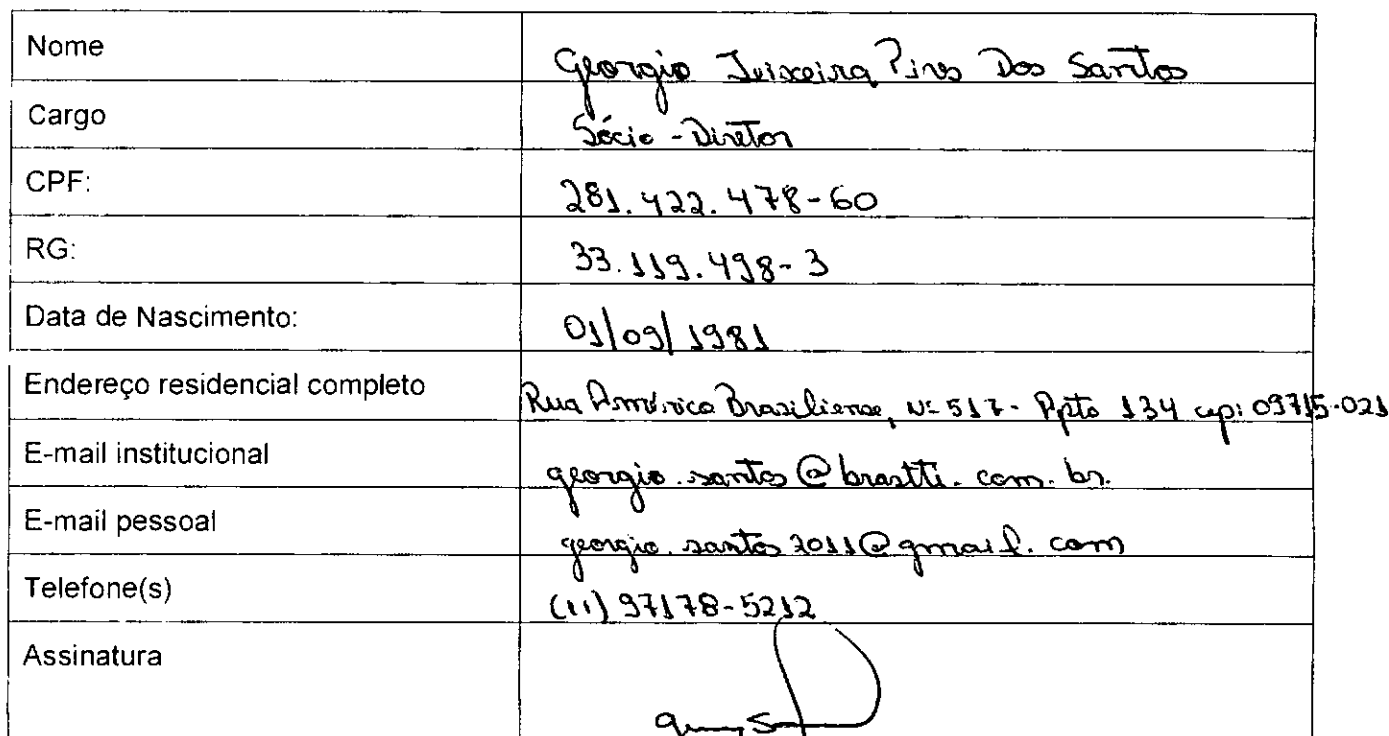 Nome Georgio Teixeira Pires Dos Santos
Cargo Sócio-Diretor
CPF: 281.422.478-60
RG: 33.119.498-3
Data de Nascimento: 01/09/1981
Endereço residencial completo Rua América Brasiliense, Nº 517 - Apto 134 cep: 09715-021
E-mail institucional georgio.santos@brastti.com.br.
E-mail pessoal georgio.santos2011@gmail.com
Telefone(s) (11) 97178-5212
Assinatura